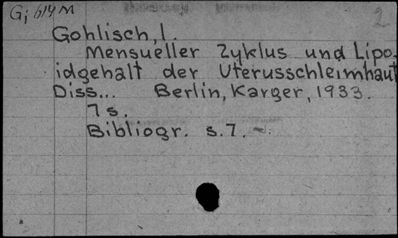 Gj 614 M
2
Gohlisch, I.
Mensueller Zyklus und Lipo-
idgehalt der Uterusschleimhaut
Diss... Berlin, Karger, 1933.
7 s.
Bibliogr. s. 7. -